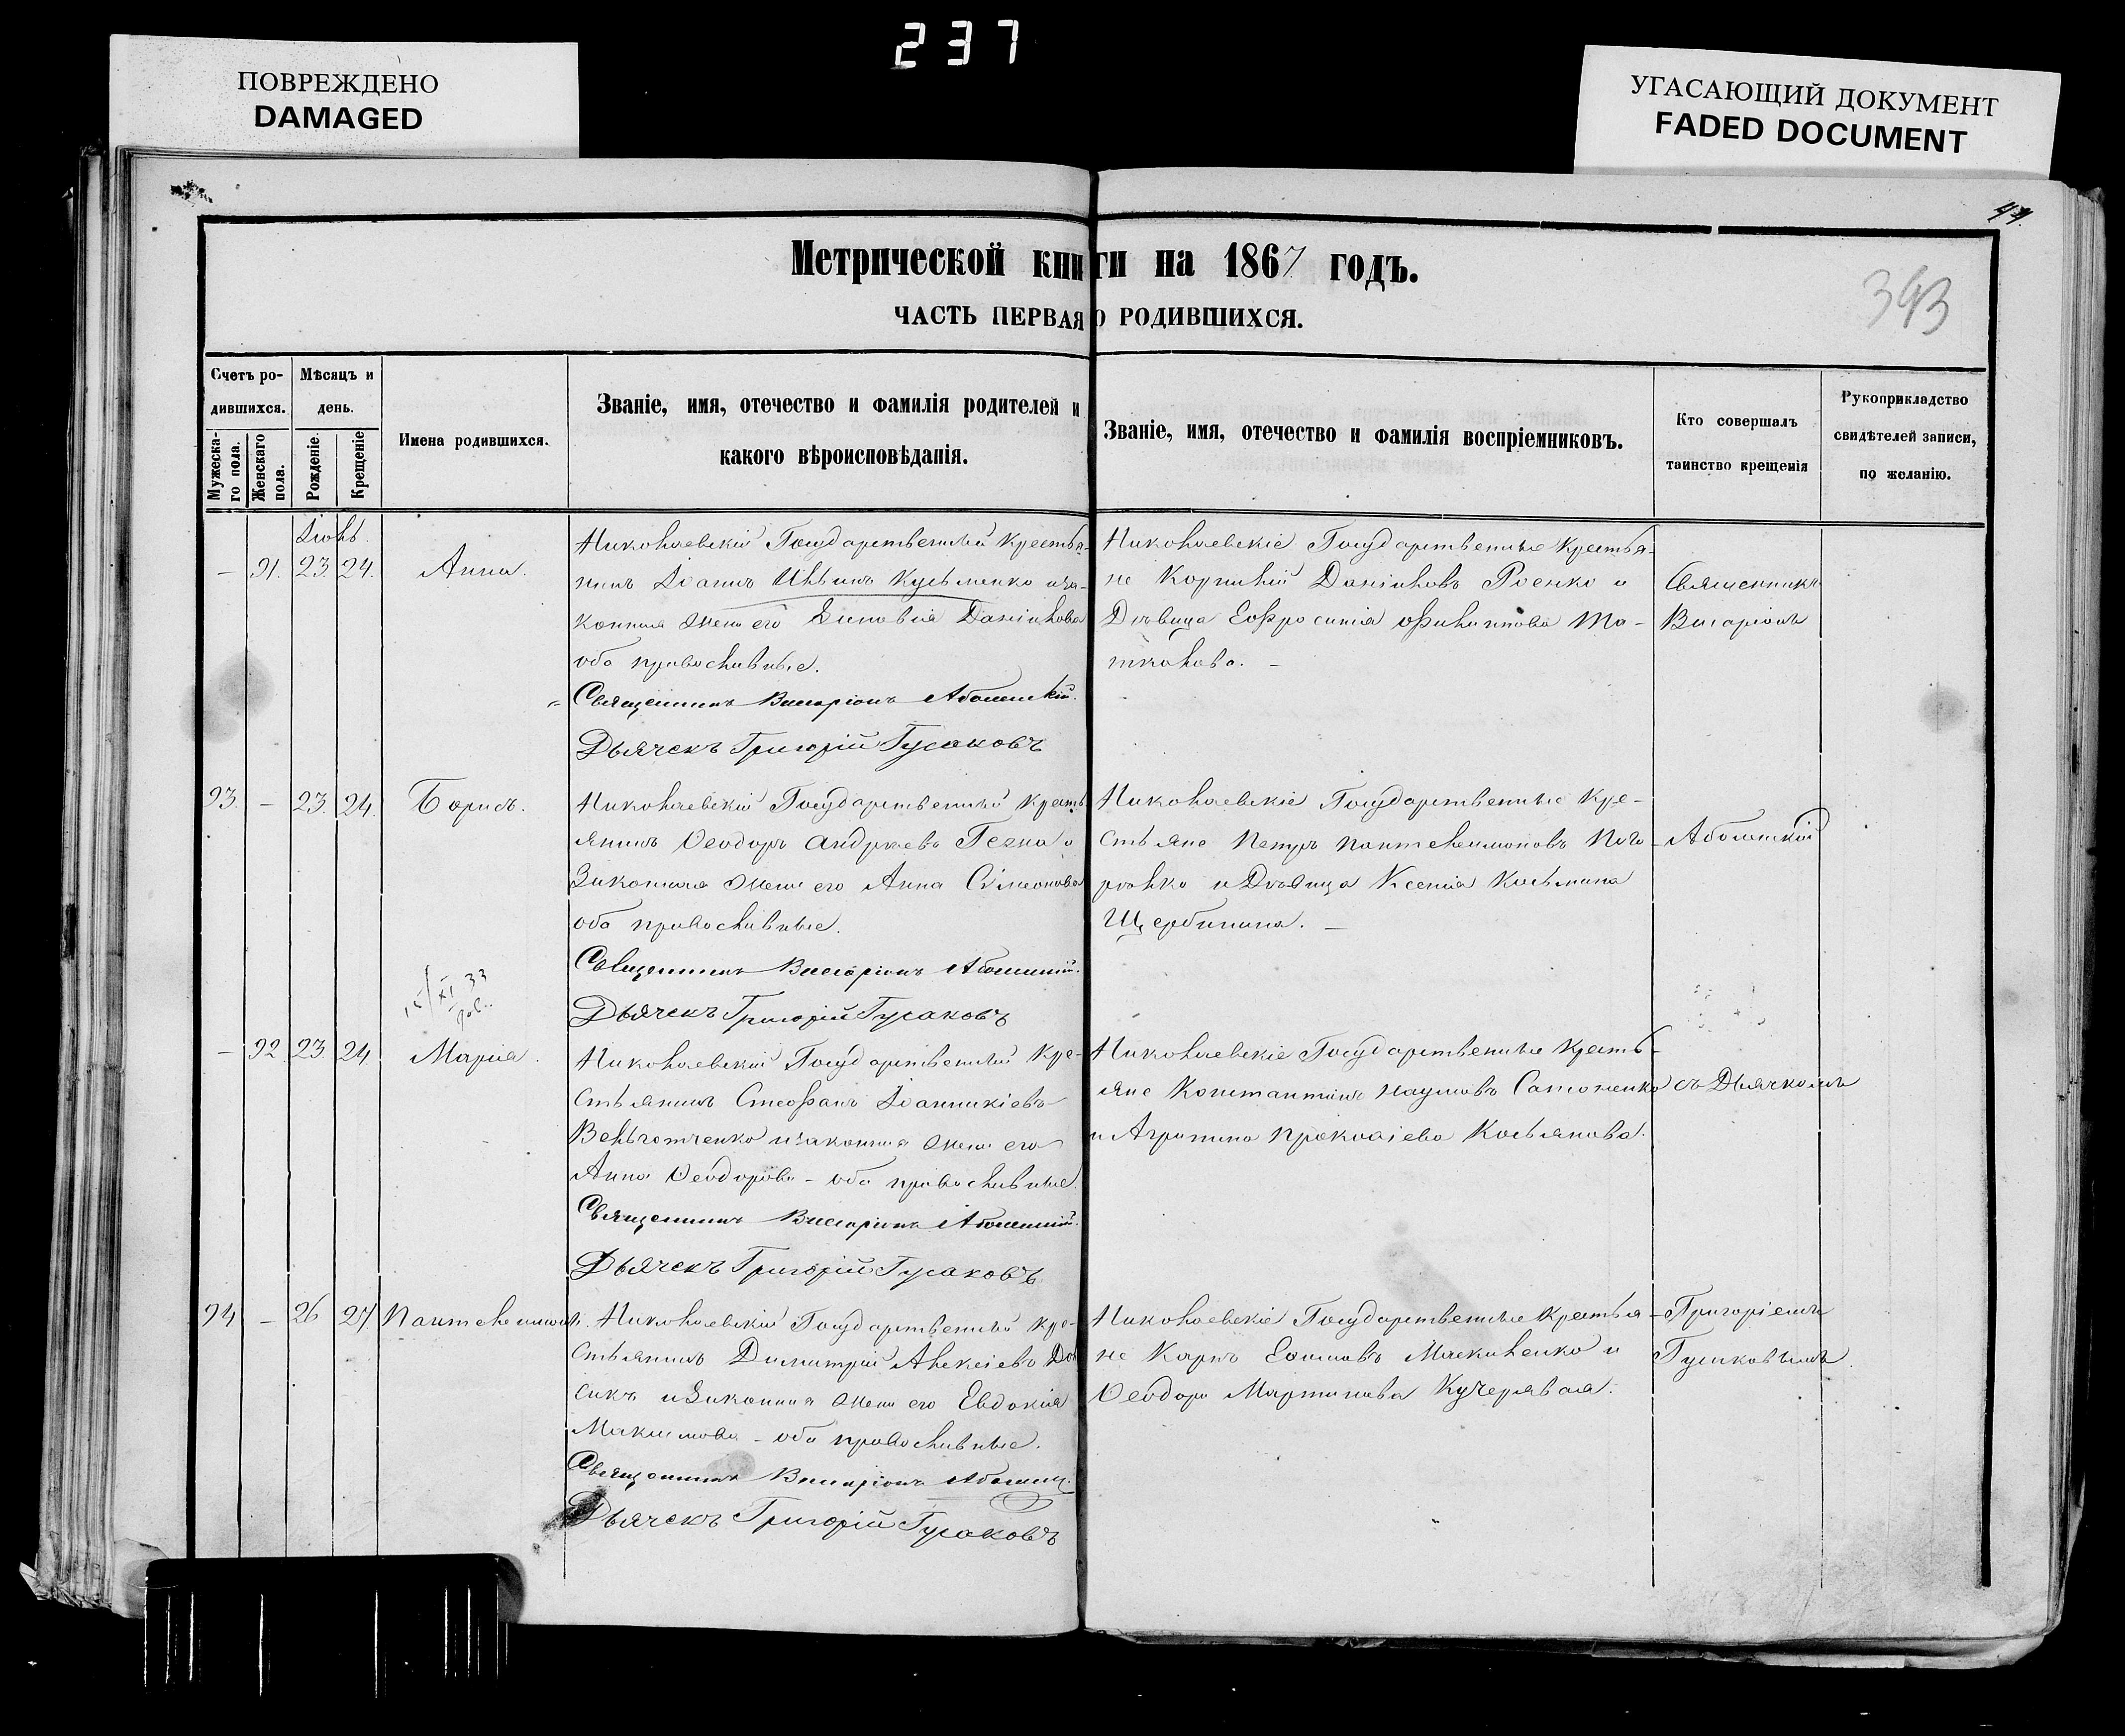 237
ПОВРЕЖДЕНО
DAMAGED
УГАСАЮЩИЙ ДОКУМЕНТ
FADED DOCUMENT
Метрической книги на 1867 годъ.
393
ЧАСТЬ ПЕРВАЯ О РОДИВШИХСЯ.
Счетъ ро-
дившихся.
Мужеска-
го пола.
Женскаго
пола.
Мѣсяцъ и
день.
Рожденіе.
Крещеніе
Имена родившихся.
Званіе, имя, отечество и фамилія родителей и
какого вѣроисповѣданія.
Званіе, имя, отечество и фамилія воспріемниковъ.
Кто совершалъ
таинство крещенія
Рукоприкладство
свидѣтелей записи,
по желанію.
Іюль.
— 91. 23. 24. Анна.
Николаевскій Государственный крестья-
нинъ Іоаннъ Кузьменко иза-
конная жена его Зиновія Даніилова
оба православные.
Священникъ Виссаріонъ
Дьячекъ Григорій Гусаковъ
Николаевскіе Государственные крестья-
не Корнилій Даніиловъ Роенко и
Дѣвица Евфросинія Филиппова То-
Священникъ
Висаріонъ
93. — 23. 24. Борисъ.
Николаевскій Государственный кресть
янинъ Ѳеодоръ Андреевъ и
Законная жена его Анна Сѵмеонова
оба православные.
Священникъ Виссаріонъ
Дьячекъ Григорій Гусаковъ
Николаевскіе Государственные кре-
стьяне Петръ Пантелеимоновъ Пого-
рѣлко и Дѣвица Ксенія Косьмина
Щербинина. —
— 92 23. 24. Марія.
Николаевскій Государственный кре-
стьянинъ Стефанъ Іоанникіевъ
изаконная жена его
Анна Ѳеодорова - оба православные.
Священникъ Виссаріонъ
Дьячекъ Григорій Гусаковъ
Николаевскіе Государственные кресть-
яне Константинъ Наумовъ
и Агрипина Прокопіева Касьянова.
съ Дьячкомъ
94 — 26 27. Пантелеимонъ.
Николаевскій Государственный кре-
стьянинъ Димитрій Алексіевъ
изаконная жена его Евдокія
Максимова - оба православные.
Священникъ Виссаріонъ
Дьячекъ Григорій Гусаковъ
Николаевскіе Государственные крестья-
не Карпъ и
Ѳеодора Мартинова Кучерявая.
Григоріемъ
Гусаковымъ.